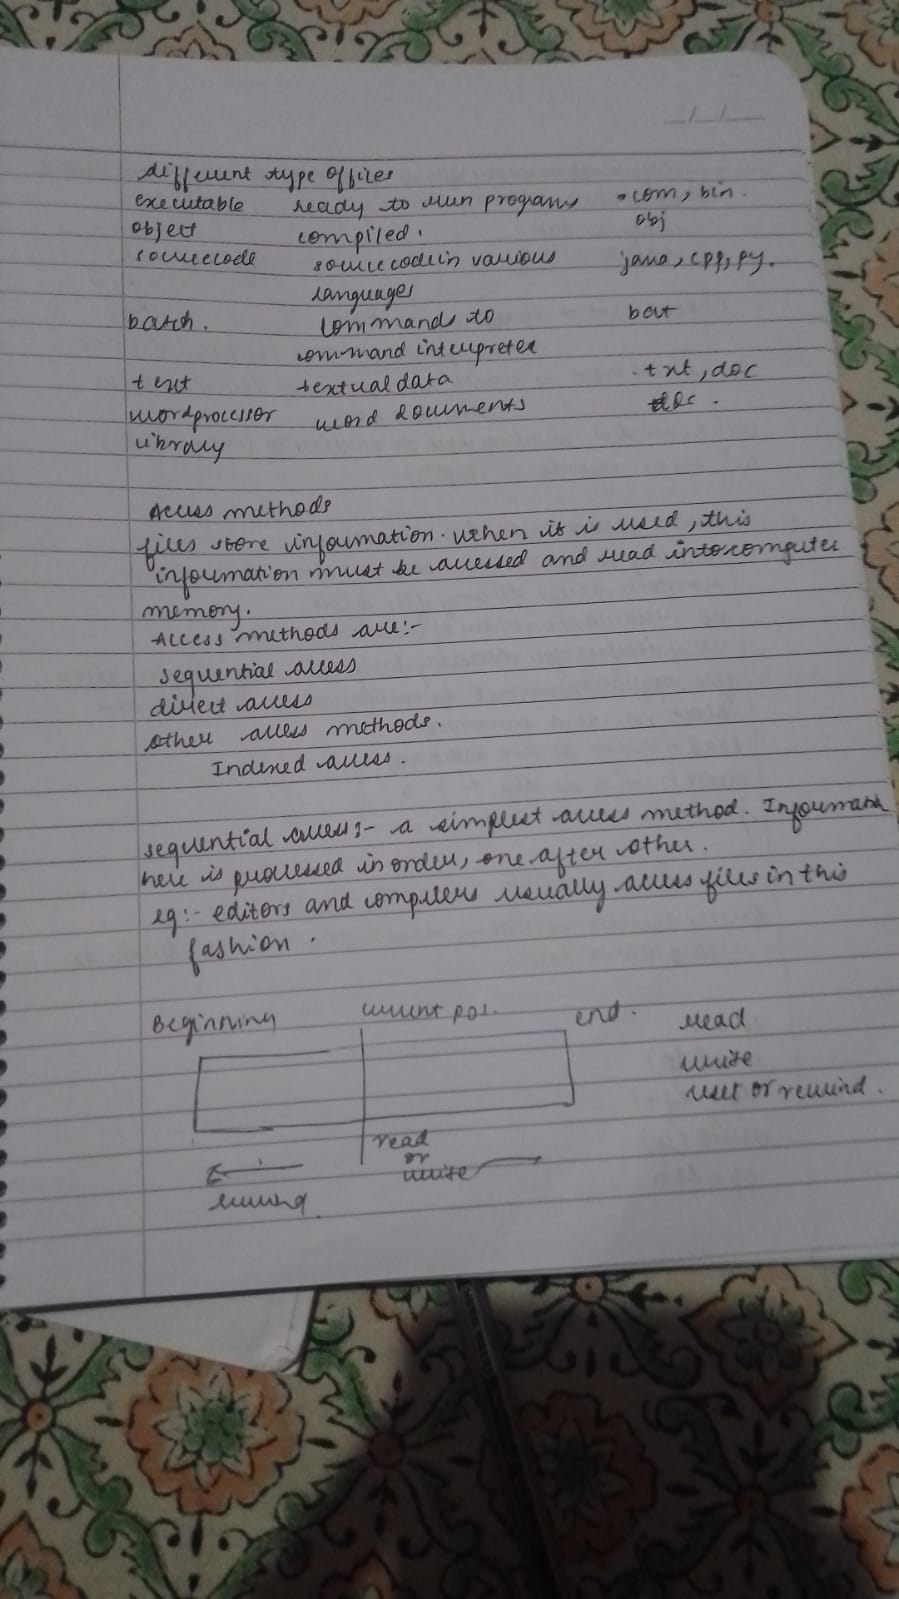 different type of files
executable ready to run program .com, bin.
object compiled. obj
sourcecode source code in various java, cpp, py.
languages
batch. commands to bat
command interpreter
text textual data .txt, doc
wordprocessor word documents doc.
library
Access methods
files store information. when it is used, this
information must be accessed and read into computer
memory.
Access methods are:-
sequential access
direct access
other access methods.
Indexed access.
sequential access:- a simplest access method. Information
here is processed in order, one after other.
eg:- editors and compilers usually access files in this
fashion.
Beginning current pos. end. read
write
reset or rewind.
read
or
write
rewind